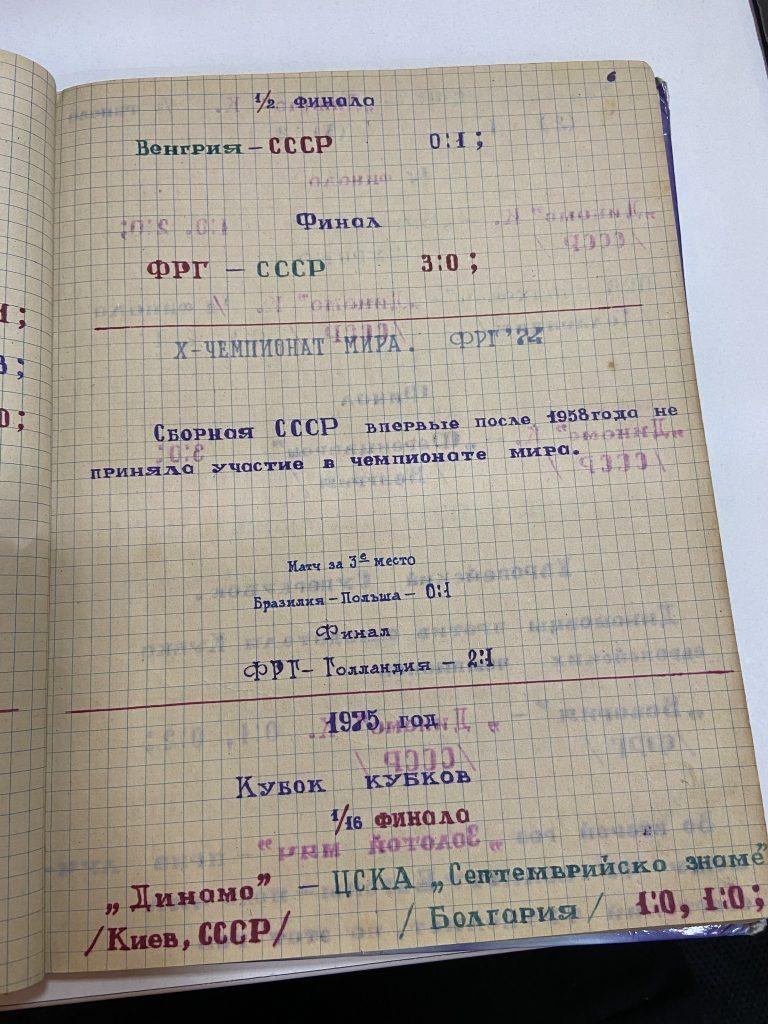 6
1/2 финала
Венгрия – СССР 0:1;
Финал
ФРГ – СССР 3:0;
X-ЧЕМПИОНАТ МИРА. ФРГ'74
Сборная СССР впервые после 1958 года не
приняла участие в чемпионате мира.
Матч за 3е место
Бразилия – Польша – 0:1
Финал
ФРГ – Голландия – 2:1
1975 год
Кубок кубков
1/16 финала
„Динамо” – ЦСКА „Септемврийско знаме”
/Киев, СССР/ /Болгария/ 1:0, 1:0;